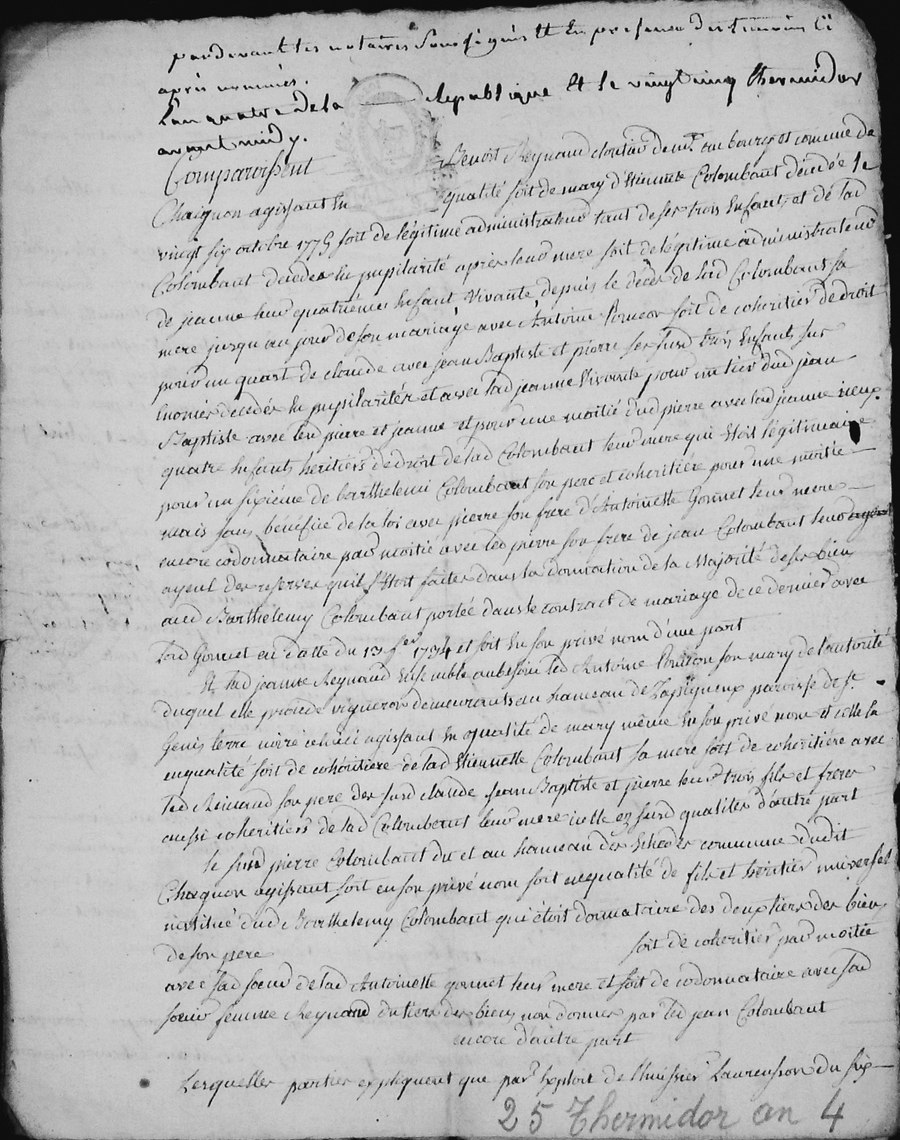 pardevant les notaires soussignés et en presence des temoins ci
après nommés.
L'an quatre de la Republique et le vingt cinq thermidor
avant midy.
Comparoissent Benoit Reynaud cloutier dem.t au bourg et comune de
Chaignon agissant en qualité soit de mary d'Etiennete Colombaut décédée le
vingt six octobre 1775 soit de légitime administrateur tant de ses trois enfants et de lad
Colombaut decedes en pupilarité après leur mere soit de légitime administrateur
de jeanne leur quatriéme enfant vivante depuis le décès de lad Colombaut sa
mere jusqu'au jour de son mariage avec Antoine Poncon soit de coheritier de droit
pour un quart de claude avec jean Baptiste et pierre ses susd trois enfants sus
només decedés en pupilarités et avec lad jeanne vivante pour un tier dud jean
Baptiste avec led pierre et jeanne et pour une moitié dud pierre avec lad jeanne
quatre enfants héritiers de droit de lad Colombaut leur mere qui etoit légitimaire
pour un sixiéme de barthelemi Colombaut son pere et coheritiére pour une moitié
mais sous bénéfice de la loi avec pierre son frere d'Antoinette Gonnet leur mere
encore codonnataire par moitié avec led pierre son frere de jean Colombaut leur
ayeul des reserves qu'il s'etoit faites dans la donnation de la Majorité de ses biens
aud Barthélemy Colombaut portée dans le contract de mariage de ce dernier avec
lad Gonnet en datte du 13 1734 et soit en son privé nom d'une part
Et lad jeanne Reynaud ensemble aubesoin led Antoine Poncon son mary de l'autorité
duquel elle procéde vigneron demeurants au hameau de paroisse de S.t
Genis terre noire celui ci agissant en qualité de mary même en son privé nom et celle la
enqualité soit de cohéritiere de lad Etiennette Colombaut sa mere soit de cohéritiére avec
led Reinaud son pere des susd claude jean Baptiste et pierre leurs trois fils et freres
aussi coheritiers de lad Colombaut leur mere icelle en susd qualités d'autre part
le susd pierre Colombaut du et au hameau des commune dudit
Chagnon agissant soit en son privé nom soit enqualité de fils et héritier universel
institué dud Barthelemy Colombaut qui étoit donnataire des deux tiers des biens
de son pere soit de coheritier par moitié
avec sad soeur de lad Antoinette gonnet leur mere et soit de codonnataire avec sad
soeur femme Reynaud du tiers des biens non donnés par led jean Colombaut
encore d'autre part
Lesquelles parties expliquent que par exploit de l'huissier Laurenson du six
25 Thermidor an 4